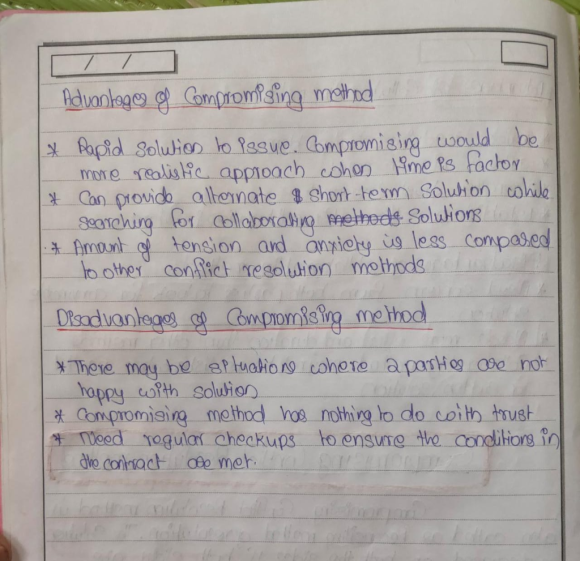 / /
Advantages of Compromising method
* Rapid Solution to issue. Compromising would be
more realistic approach when time is factor
* Can provide alternate & short-term Solution while
searching for collaborating methods Solutions
* Amount of tension and anxiety is less compared
to other conflict resolution methods
Disadvantages of Compromising method
* There may be situations where 2 parties are not
happy with solution
* Compromising method has nothing to do with trust
* Need regular checkups to ensure the conditions in
the contract are met.